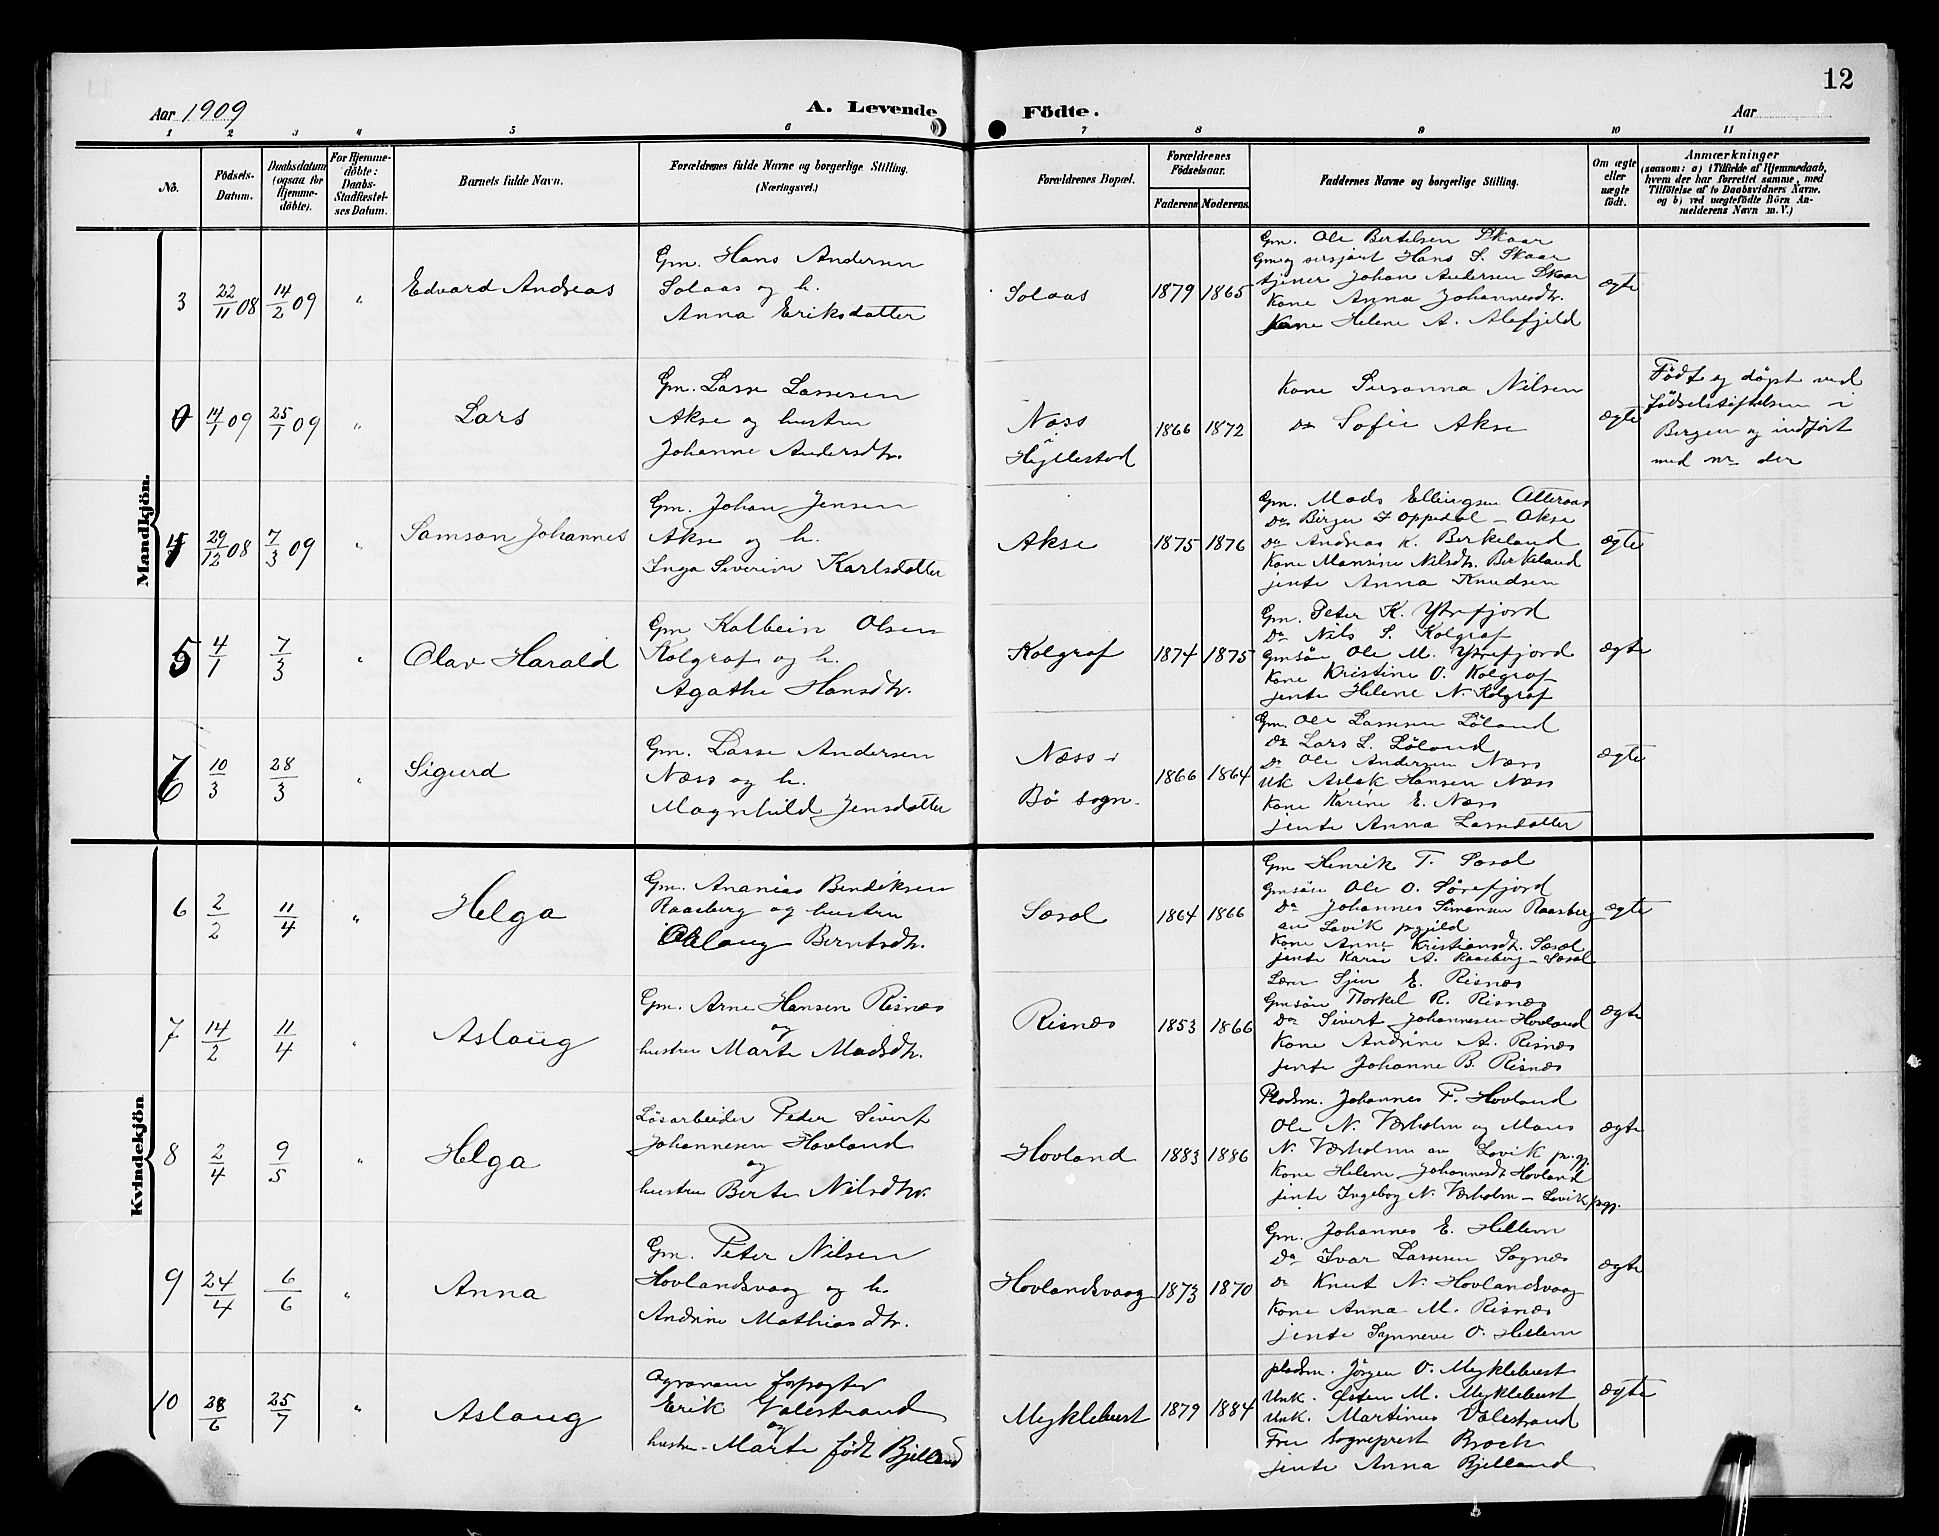 12
Aar 1909
A. Levende Födte.
Aar
1 2 3 4 5 6 7 8 9 10 11
No.
Födsels-Datum.
Daabsdatum (ogsaa for Hjemme-döbte).
For Hjemme-döbte: Daabs-Stadfæstel-ses Datum.
Barnets fulde Navn.
Forældrenes fulde Navne og borgerlige Stilling. (Næringsvei.)
Forældrenes Bopæl.
Forældrenes Födselsaar.
Faderens Moderens
Faddernes Navne og borgerlige Stilling.
Om ægte eller uægte födt.
Anmærkninger
(saasom: a) i Tilfælde af Hjemmedaab,
hvem der har forrettet samme, med
Tilföielse af to Daabsvidners Navne.
og b) ved uægtefödte Börn An-
melderens Navn m. V.)
Mandkjön.
3 22/11 08 14/2 09 " Edvard Andreas
Gm. Hans Andersen
Solaas og h.
Anna Eriksdatter
Solaas 1879 1865
Gm. Ole Bertelsen Skaar
Gm og sersjant Hans S. Skaar
tjener Johan Andersen Skaar
Kone Anna Johannesdtr.
Kone Helene A. Alefjeld
ægte
0 14/1 09 25/1 09 " Lars
Gm. Lasse Lassesen
Akse og hustru
Johanne Andersdtr.
Næss
i
Hyllestad
1866 1872
Kone Susanna Nilsen
Do Sofie Akse
ægte
Født og døpt ved
fødselstiftelsen i
Bergen og indført
med nr der
4 29/12 08 7/3 09 " Samson Johannes
Gm. Johan Jensen
Akse og h.
Inga Severine Karlsdatter
Akse 1875 1876
Gm. Mads Ellingsen Atteraas
Do Birger I Oppedal - Akse
Do Andreas K. Berkeland
Kone Mansine Nilsdtr. Berkeland
jente Anna Knudsen
ægte
5 4/1 7/3 " Olav Harald
Gm Kolbein Olsen
Kolgraf og h.
Agathe Hansdtr.
Kolgraf 1874 1875
Gm. Peter K. Ytrefjord
Do Nils S. Kolgraf
Gmsøn Ole M. Ytrefjord
Kone Kristine O. Kolgraf
jente Helene N Kolgraf
ægte
6 10/3 28/3 " Sigurd
Gm. Lasse Andersen
Næss og h.
Magnhild Jensdatter
Næss i
Bø sogn.
1866 1864
Gm. Ole Lassesen Løland
Do Lars L. Løland
Do Ole Andersen Næss
Uk Aslak Hansen Næss
Kone Karine E. Næss
jente Anna Larsdatter
ægte
Kvindekjön
6 2/2 11/4 " Helga
Gm. Ananias Bendiksen
Raasberg og hustru
Oblaug Berntsdtr.
Sæsol 1864 1866
Gm Henrik T. Sæsol
Gmsøn Ole O. Sørefjord
Do Johannes Simonsen Raasberg
av Lavik pgjeld
Kone Anne Kristiansdtr. Sæsol
jente Karie A. Raasberg - Sæsol
ægte
7 14/2 11/4 " Aslaug
Gm. Arne Hansen Risnes
og
hustru Marte Madsdtr.
Risnes 1853 1866
Lærer Sjur E. Risnes
Gmsøn Thorkel R. Risnes
Do Sivert Johannesen Hovland
Kone Andrine A. Risnes
jente Johanne B. Risnes
ægte
8 2/4 9/5 " Helga
Løsarbeider Peder Sivert
Johannesen Hovland
og
hustru Berte Nilsdtr.
Hovland 1883 1886
Pladsm. Johannes P. Hovland
Ole N. Værholm og Mons
N. Værholm av Lavik pr.gj.
Kone Helene Johannesdtr Hovland
jente Ingeborg N. Værholm - Lavik prgj.
ægte
9 24/4 6/6 " Anna
Gm. Peter Nilsen
Hovlandsvaag og h.
Andrine Mathiasdtr.
Hovlandsvaag 1873 1870
Gm. Johannes E. Hellem
Do Ivar Lassesen Sognes
Do Knut N. Hovlandsvaag
Kone Anna M. Risnes
jente Synneve O. Hellem
ægte
10 28/6 25/7 " Aslaug
Agronom forpagter
Erik Valestrand
og
hustru Marte født Bjelland
Myklebust 1879 1884
pladsm. Jørgen O. Myklebust
Unk. Østen M. Myklebust
Unk. Martinus Valestrand
Fru Sogneprest Broch
jente Anna Bjelland
ægte